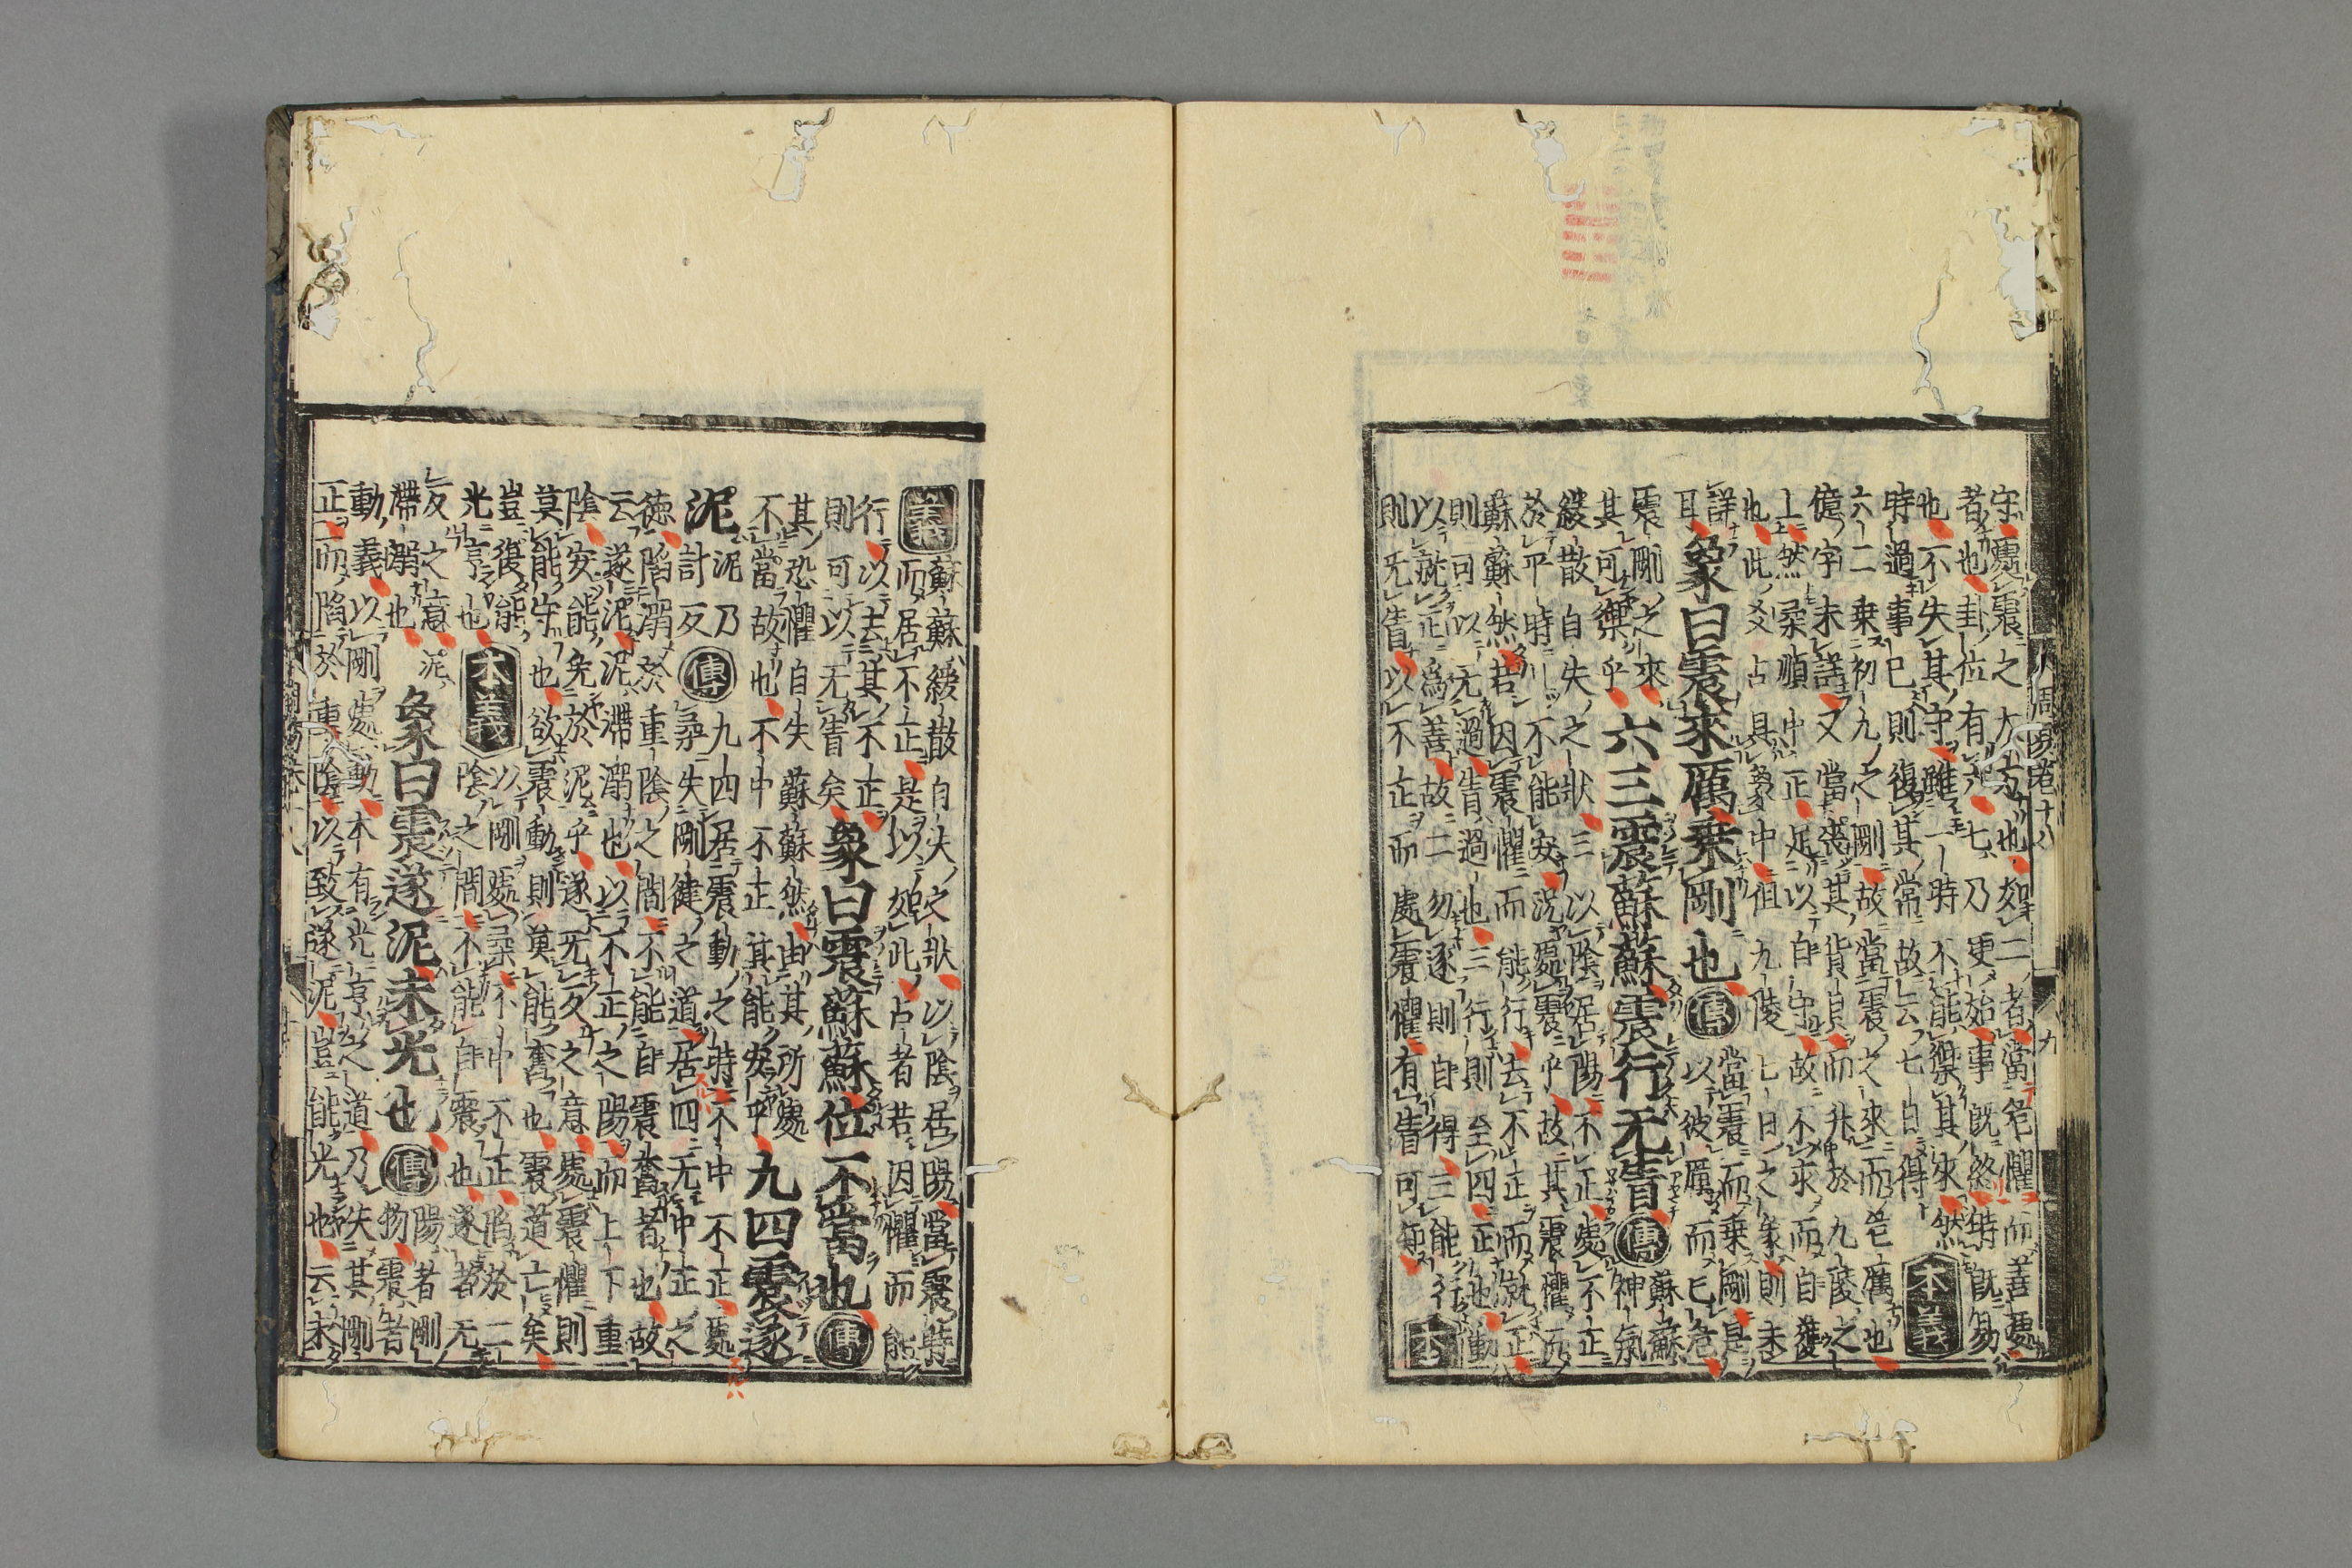 守處震之大方也如二者當危懼而善處
者也卦位有六七乃更始事既終時既易
也不失其守雖一時不能禦其來然
時過事已則復其常故云七日得
本義
六二乘初九之剛故當震之來而危厲也
億字未詳又當喪其貨貝而升於九陵之
上然柔順中正足以自守故不求而自獲
也此爻占具象中但九陵七日之象則未
詳
耳
象曰震來厲乘剛也
傳
當震而乘剛是
以彼厲而已危
震剛之來
其可禦乎
六三震蘇蘇震行无眚
傳
蘇蘇
神氣
緩散自失之狀三以陰居陽不正處不正
於平時不能安況處震乎故其震懼而
蘇蘇然若因震懼而能行去不正而就正
則可以无過眚過也三行則至四正也動
以就正爲善故二勿逐則自得三能行
則无眚以不正而處震懼有眚可知
本
周易卷十八
九
義
蘇蘇緩散自失之狀以陰居陽當震時
而居不正是以如此占者若因懼而能
行以去其不正
則可以无眚矣
象曰震蘇蘇位不當也
傳
其恐懼自失蘇蘇然由其所處
不當故也不中不正其能安乎
九四震遂
泥
泥乃
計反
傳
九四居震動之時不中不正處
柔失剛健之道居四无中正之
德陷溺於重陰之間不能自震奮者也故
云遂泥泥滯溺也以不正之陽而上下重
陰安能免於泥乎遂无反之意處震懼則
莫能守也欲震動則莫能奮也震道亡矣
豈復能
光亨也
本義
以剛處柔不中不正陷於二
陰之間不能自震也遂者无
反之意泥
滯溺也
象曰震遂泥未光也
傳
陽者剛
物震者
動義以剛處動本有光亨之道乃失其剛
正而陷於重陰以致遂泥豈能光也云未